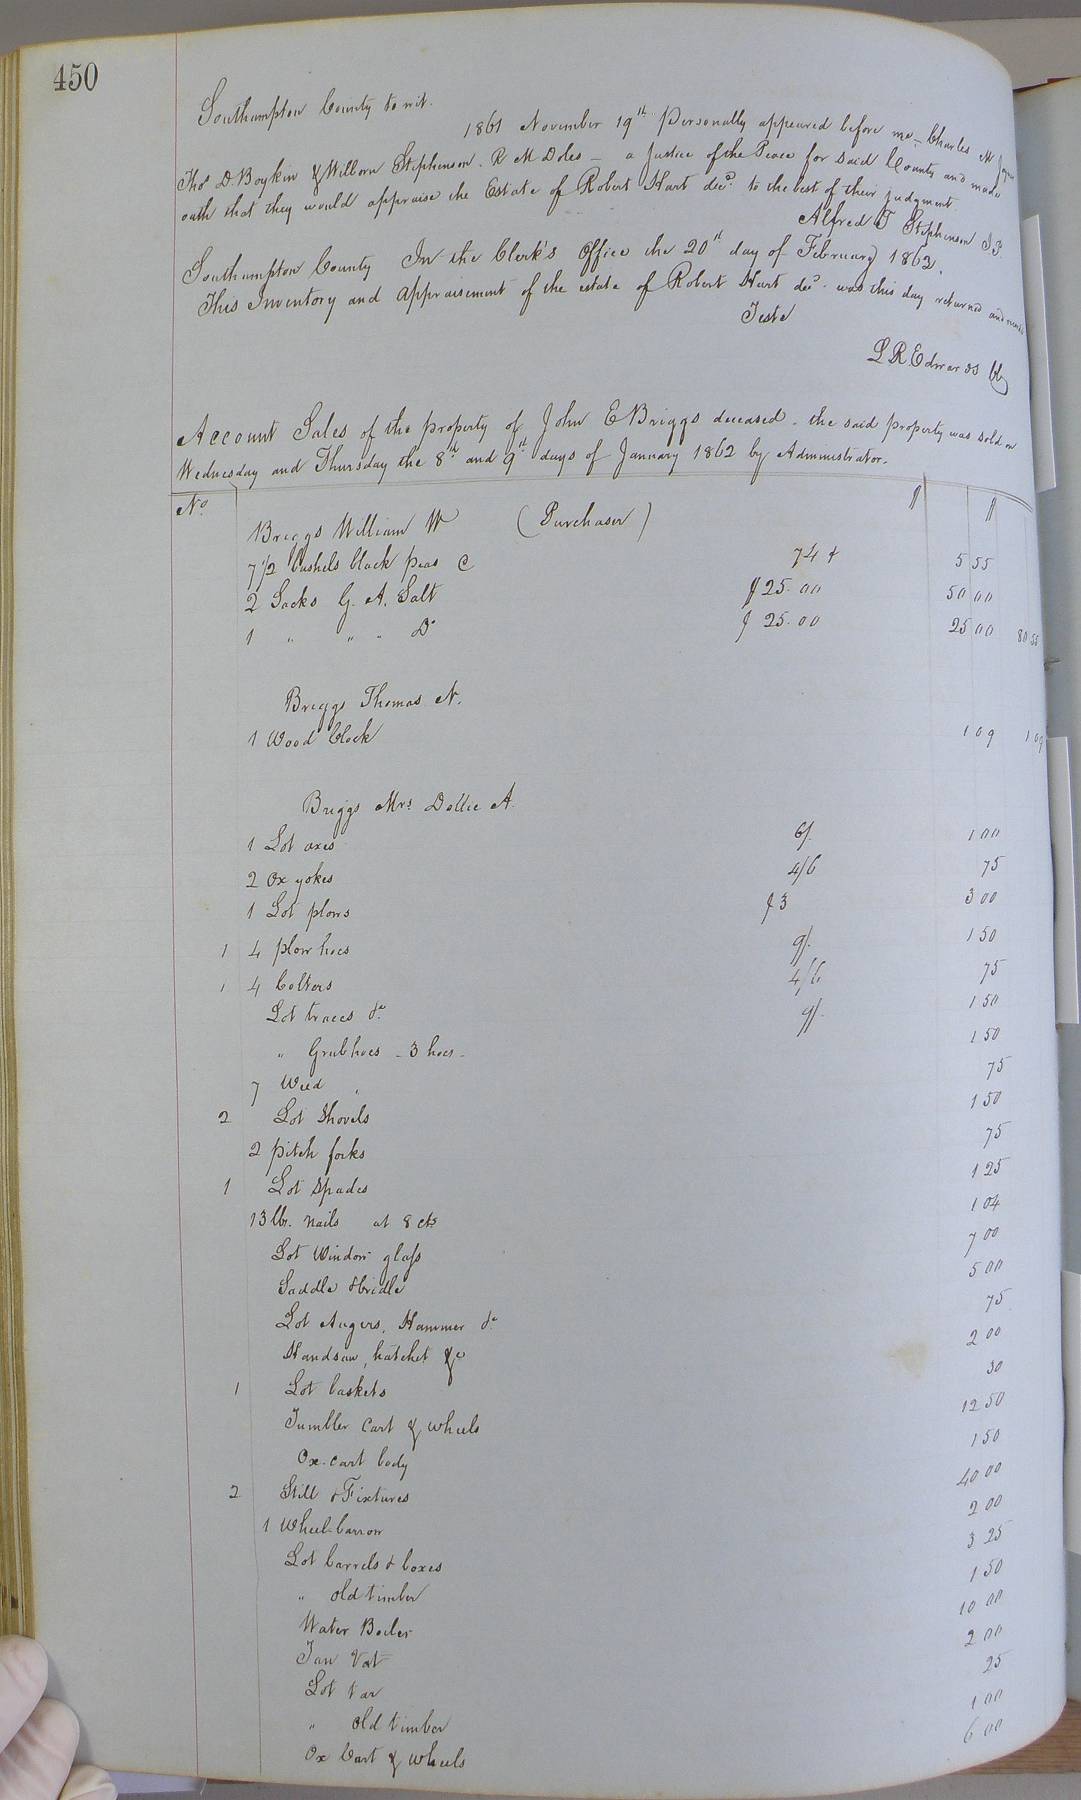 450
Southampton County to wit.
1861 November 19th Personally appeared before me - Charles M
Thos D. Boykin & Wilborn Stephenson. R M Doles - a Justice of the Peace for said County and made
oath that they would appraise the Estate of Robert Hart decd. to the best of their judgment.
Alfred J Stephenson J.P.
Southampton County In the Clerk's Office the 20th day of February 1862.
This Inventory and appraisement of the estate of Robert Hart decd. was this day returned and
Teste
L R. Edwards Ck
Account Sales of the property of John E Briggs deceased - the said property was sold on
Wednesday and Thursday the 8th and 9th days of January 1862 by Administrator.
No $ $
Briggs William W (Purchaser)
7 1/2 bushels black peas @ 74 ¢ 5 55
2 Sacks G. A. Salt $ 25.00 50 00
1 " " " Do $ 25.00 25 00 80 55
Briggs Thomas N.
1 Wood Clock 1 09 1 09
Briggs Mrs Dollie A.
1 Lot axes 6/. 1 00
2 Ox yokes 4/6 75
1 Lot plows $3 3 00
1 4 plow hoes 9/. 1 50
1 4 Colters 4/6 75
Lot traces &c 9/. 1 50
" Grubhoes - 3 hoes - 1 50
7 Weed " 75
2 Lot Shovels 1 50
2 pitch forks 75
1 Lot Spades 1 25
13 lbs. nails at 8 cts 1 04
Lot Window glass 7 00
Saddle & bridle 5 00
Lot Augers, Hammer &c 75
Handsaw, hatchet &c 2 00
1 Lot baskets 30
Tumbler Cart & wheels 12 50
Ox-cart body 1 50
2 Still & Fixtures 40 00
1 Wheel-barrow 2 00
Lot barrels & boxes 3 25
" old timber 1 50
Water Boiler 10 00
Tan Vat 2 00
Lot tar 25
" old timber 1 00
Ox Cart & wheels 6 00